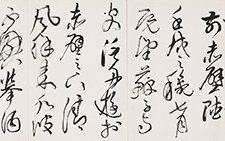 前赤壁賦
壬戌之秋七月
既望蘇子與
客泛舟遊於
赤壁之下清
風徐來水波
不興舉酒